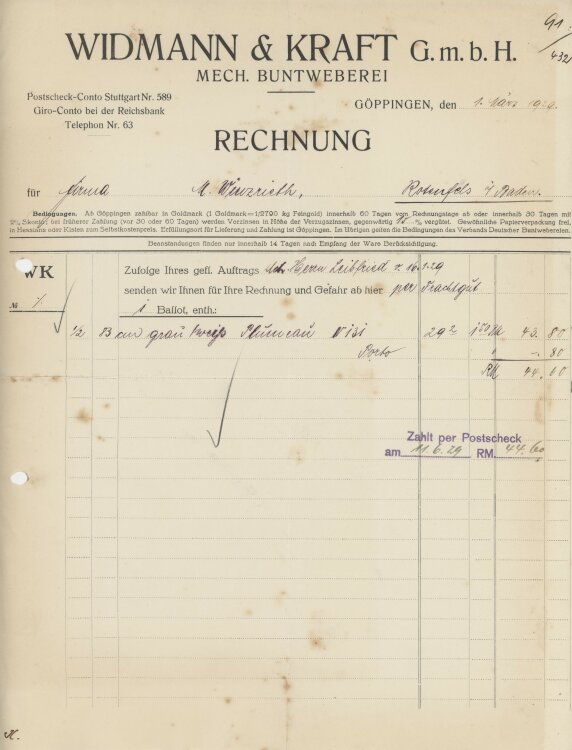 91
4321
WIDMANN & KRAFT G.m.b.H.
MECH. BUNTWEBEREI
Postscheck-Conto Stuttgart Nr. 589
Giro-Conto bei der Reichsbank
Telephon Nr. 63
GÖPPINGEN, den 1. März 1929.
RECHNUNG
für Firma M. Winzrieth, Rotenfels i/ Baden.
Bedingungen. Ab Göppingen zahlbar in Goldmark (1 Goldmark=1/2790 kg Feingold) innerhalb 60 Tagen vom Rechnungstage ab oder innerhalb 30 Tagen mit
2% Skonto, bei früherer Zahlung (vor 30 oder 60 Tagen) werden Vorzinsen in Höhe der Verzugszinsen, gegenwärtig % vergütet. Gewöhnliche Papierverpackung frei,
in Hessians oder Kisten zum Selbstkostenpreis. Erfüllungsort für Lieferung und Zahlung ist Göppingen. Im Übrigen gelten die Bedingungen des Verbands Deutscher Buntwebereien.
Beanstandungen finden nur innerhalb 14 Tagen nach Empfang der Ware Berücksichtigung.
WK
Zufolge Ihres gefl. Auftrags Herrn Leibfried v. 16.1.29
senden wir Ihnen für Ihre Rechnung und Gefahr ab hier per Frachtgut
№ 1. 1 Ballot, enth.:
1/2 83 cm grau weiß Plumeau 29² 150 43.80
Porto -.80
RM 44.60
Zahlt per Postscheck
am 11.6.29 RM. 44.60